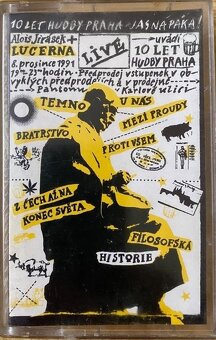 10 LET HUDBY PRAHA - JASNÁ PÁKA!
Alois Jirásek +
LUCERNA
LIVE
uvádí
10 LET
HUDBY PRAHA
8. prosince 1991
19-23 hodin - Předprodej vstupenek v ob-
vyklých předprodejích a v prodejně
Pantonu Karlově ulici
TEMNO
U NÁS
BRATRSTVO
MEZI PROUDY
PROTI VŠEM
Z ČECH AŽ NA
KONEC SVĚTA
FILOSOFSKÁ
HISTORIE